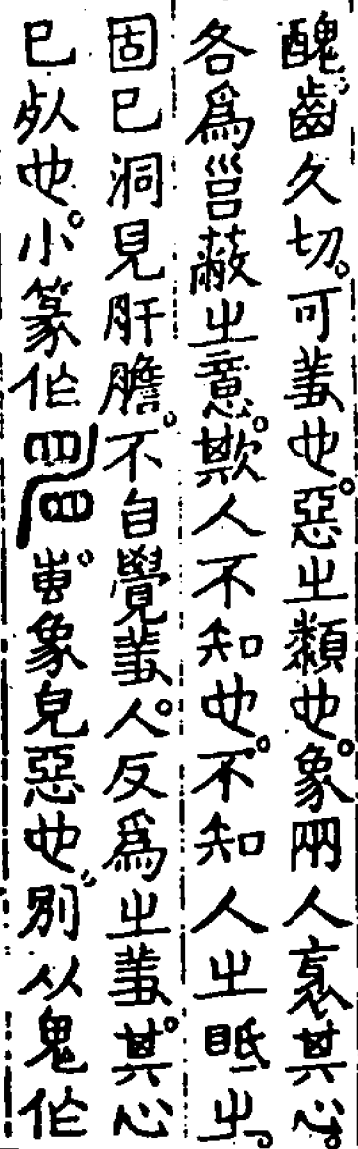 醜齒久切。可羞也。惡㞢類也。象兩人其心。
各爲邕蔽㞢意。欺人不知也。不知人㞢眡㞢。
固已洞見肝膽。不自覺羞。人反爲㞢羞。其心
已𣦸也。小篆作。象皃惡也。別从鬼作